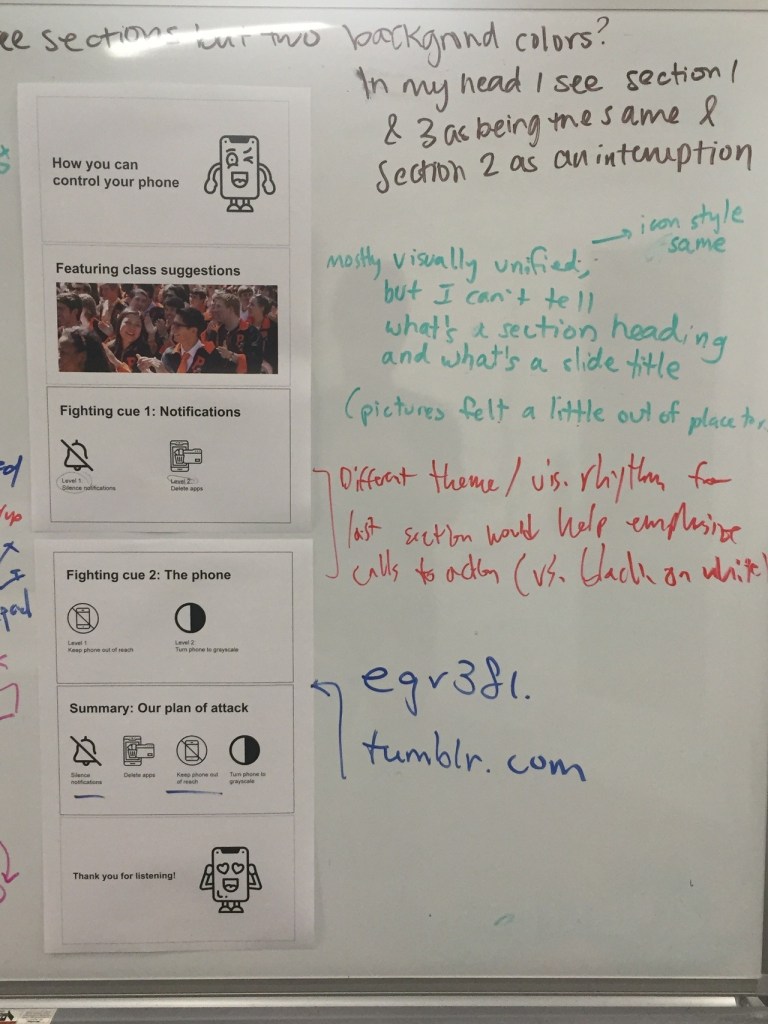 ee sections but two backgrond colors?
In my head I see section 1
& 3 as being the same &
section 2 as an interruption
How you can
control your phone
Featuring class suggestions
Fighting cue 1: Notifications
Level 1
Silence notifications
Level 2
Delete apps
Fighting cue 2: The phone
Level 1
Keep phone out of reach
Level 2
Turn phone to greyscale
Summary: Our plan of attack
Silence
notifications
Delete apps
Keep phone out
of reach
Turn phone to
greyscale
Thank you for listening!
→ icon style
same
mostly visually unified,
but I can't tell
what's a section heading
and what's a slide title
(pictures felt a little out of place
Different theme / vis. rhythm for
last section would help emphasize
calls to action (vs. black on white)
egr381.
tumblr.com